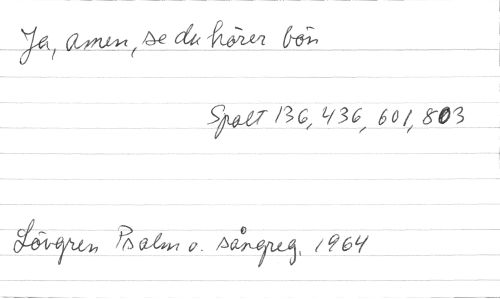 Ja, amen, se du hörer bön
Spalt 136, 436, 601, 803
Lövgren Psalm o. sångreg. 1964